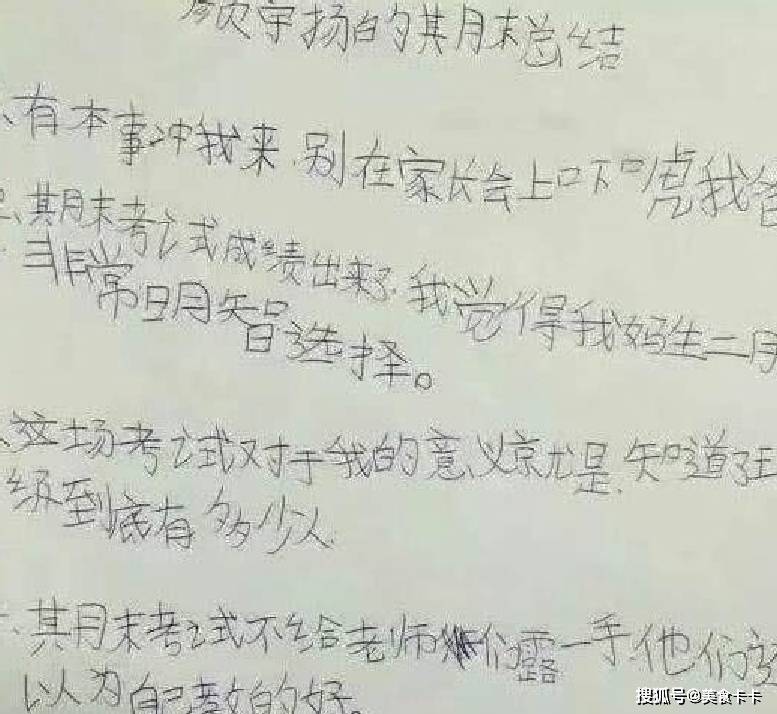 宇扬的期末总结
、有本事冲我来,别在家长会上吓唬我爸
、期末考试成绩出来了,我觉得我妈生二月
非常明智选择。
、这场考试对于我的意义就是,知道了王
级到底有多少人.
、期末考试不给老师们露一手,他们
以为自己教的好。
搜狐号@美食卡卡